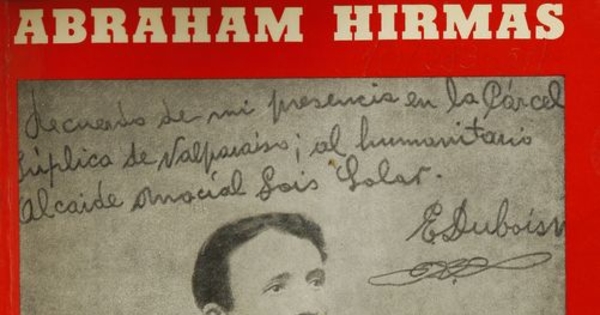 ABRAHAM HIRMAS
Recuerdo de mi presencia en la Cárcel
Púplica de Valparaíso; al humanitario
Alcaide Amacial Lois Solar.
E Dubois